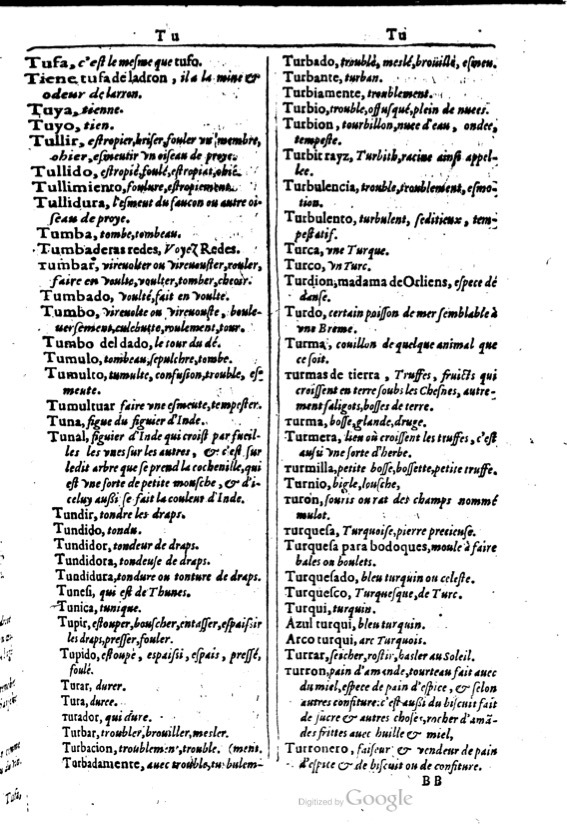 Tu
Tufa, c'est le mesme que tufo.
Tiene tufa de ladron, il a la mine &
odeur de larron.
Tuya, tienne.
Tuyo, tien.
Tullir, estropier, briser, fouler vn membre,
ohier, esmeutir vn oiseau de proye.
Tullido, estropié, foulé, estropiat, ohié.
Tullimiento, foulure, estropiement.
Tullidura, l'esmeut du faucon ou autre oi-
seau de proye.
Tumba, tombe, tombeau.
Tumbaderas redes, Voyez Redes.
Tumbar, vireuolter ou vireuouster, rouler,
faire en voulte, voulter, tomber, cheoir.
Tumbado, voulté, fait en voulte.
Tumbo, vireuolte ou vireuouste, boule-
uersement, culebutte, roulement, tour.
Tumbo del dado, le tour du dé.
Tumulo, tombeau, sepulchre, tombe.
Tumulto, tumulte, confusion, trouble, es-
meute.
Tumultuar faire vne esmeute, tempester.
Tuna, figue du figuier d'Inde.
Tunal, figuier d'Inde qui croist par fueil-
les les vnes sur les autres, & c'est sur
ledit arbre que se prend la cochenille, qui
est vne sorte de petite mousche, & d'i-
celuy aussi se fait la couleur d'Inde.
Tundir, tondre les draps.
Tundido, tondu.
Tundidor, tondeur de draps.
Tundidora, tondeuse de draps.
Tundidura, tondure ou tonture de draps.
Tunesi, qui est de Thunes.
Tunica, tunique.
Tupir, estouper, bouscher, entasser, espaissir
les draps, presser, fouler.
Tupido, estoupé, espaissi, espais, pressé,
foulé.
Turar, durer.
Tura, duree.
turador, qui dure.
Turbar, troubler, brouiller, mesler.
Turbacion, troublement, trouble. (ment.
Turbadamente, auec trouble, turbulem-
Tu
Turbado, troublé, meslé, broüillé, esmeu.
Turbante, turban.
Turbiamente, troublement.
Turbio, trouble, offusqué, plein de nuees.
Turbion, tourbillon, nuee d'eau, ondee,
tempeste.
Turbit rayz, Turbith, racine ainsi appel-
lee.
Turbulencia, trouble, troublement, esmo-
tion.
Turbulento, turbulent, seditieux, tem-
pestatif.
Turca, vne Turque.
Turco, vn Turc.
Turdion, madama de Orliens, espece de
danse.
Turdo, certain poisson de mer semblable à
vne Breme.
Turma, couillon de quelque animal que
ce soit.
turmas de tierra, Truffes, fruicts qui
croissent en terre soubs les Chesnes, autre-
ment saligots, bosses de terre.
turma, bosse, glande, druge.
Turmera, lieu où croissent les truffes, c'est
aussi vne sorte d'herbe.
turmilla, petite bosse, bossette, petite truffe.
Turnio, bigle, lousche,
turon, souris ou rat des champs nommé
mulot.
turquesa, Turquoise, pierre precieuse.
Turquesa para bodoques, moule à faire
bales ou boulets.
Turquesado, bleu turquin ou celeste.
Turquesco, Turquesque, de Turc.
Turqui, turquin.
Azul turqui, bleu turquin.
Arco turqui, arc Turquois.
Turrar, seicher, rostir, hasler au Soleil.
turron, pain d'amande, tourteau fait auec
du miel, espece de pain d'espice, & selon
autres confiture: c'est aussi du biscuit fait
de sucre & autres choses, rocher d'amã-
des frittes auec huille & miel,
Turronero, faiseur & vendeur de pain
d'espice & de biscuit ou de confiture.
BB
Digitized by Google
Tufa,